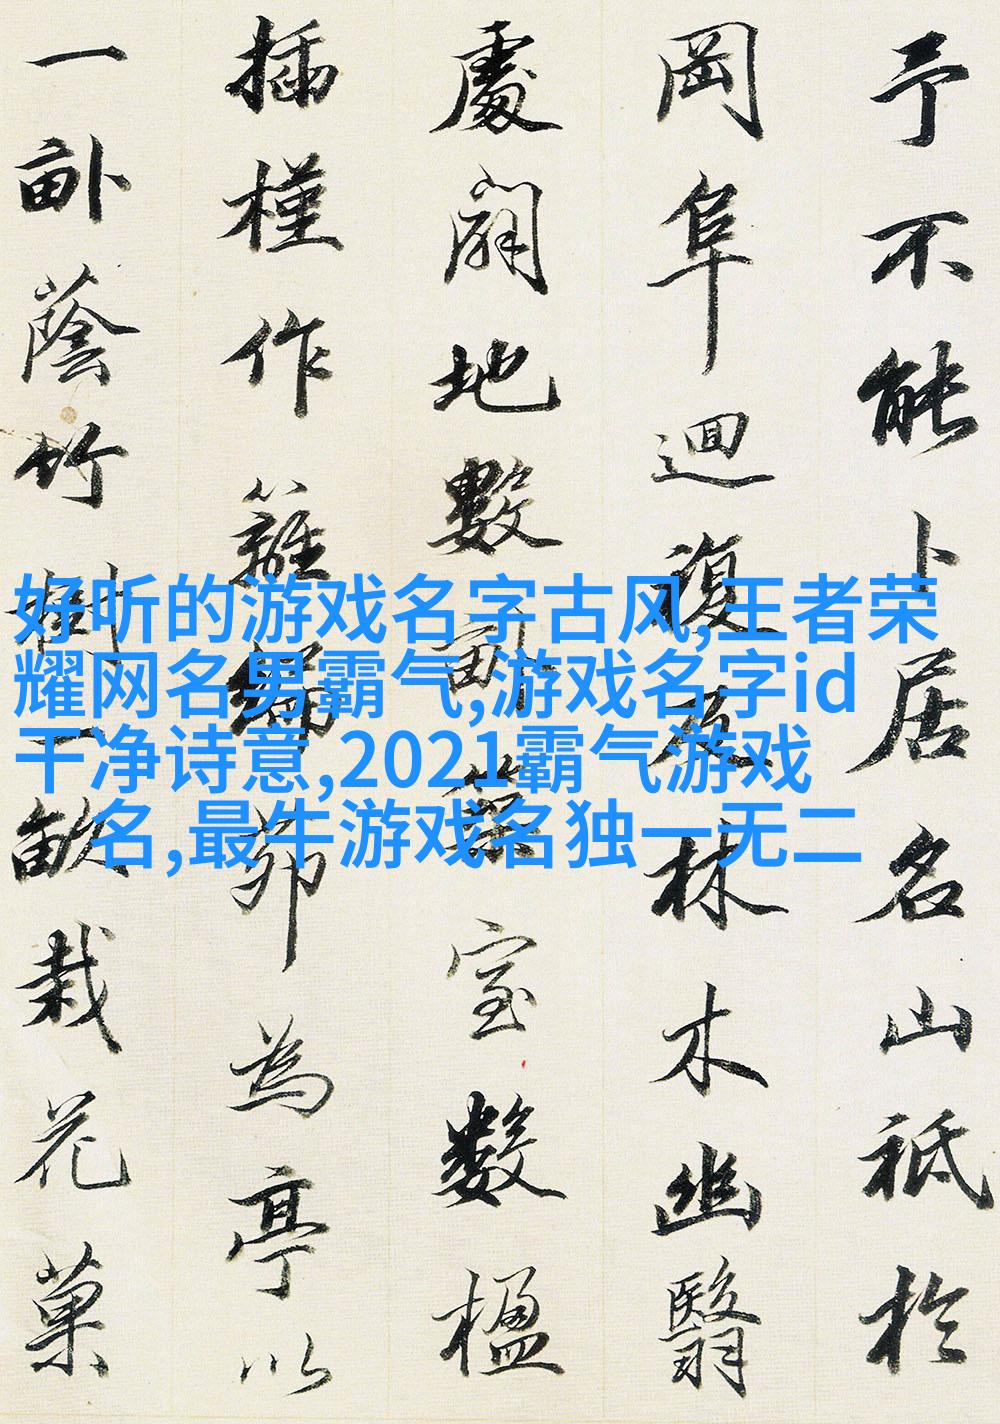 予不能卜居名山祗於
岡阜迴復及林木幽翳
處闢地數畝築室數楹
插槿作籬編茆為亭以
一畝蔭竹樹一畝栽花菓
好听的游戏名字古风,王者荣
耀网名男霸气,游戏名字id
干净诗意,2021霸气游戏
名,最牛游戏名独一无二